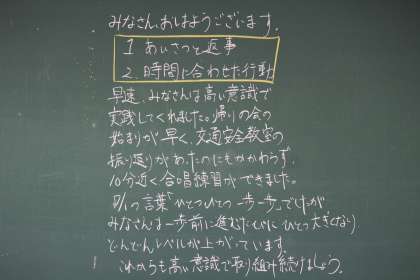 みなさん、おはようございます。
1 あいさつと返事
2. 時間に合わせた行動
早速、みなさんは高い意識で
実践してくれました。帰りの会の
始まりが早く、交通安全教室の
振り返りがあったのにもかかわらず、
10分近く合唱練習ができました。
の言葉「ひとつひとつ一歩一歩」でしたが
みなさんは一歩前に進むたびに ひとつ大きくなり
どんどんレベルが上がっています。
これからも高い意識で取り組み続けましょう。